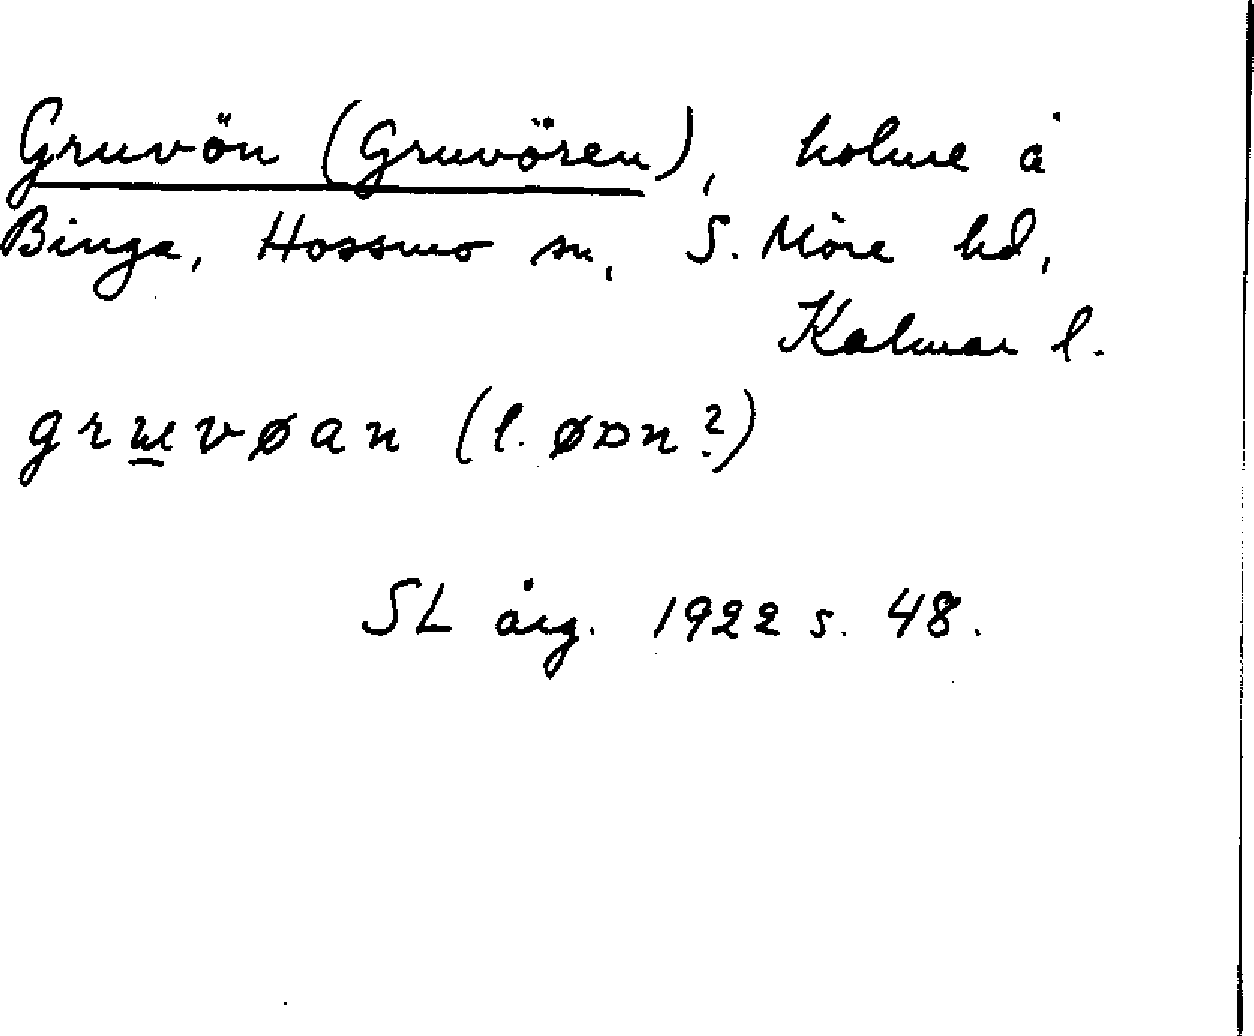 Gruvön (Gruvören), holme å
Binga, Hossmo sn, S. Möre hd,
Kalmar l.
gruvøan (l. øɒn?)
SL årg. 1922 s. 48.